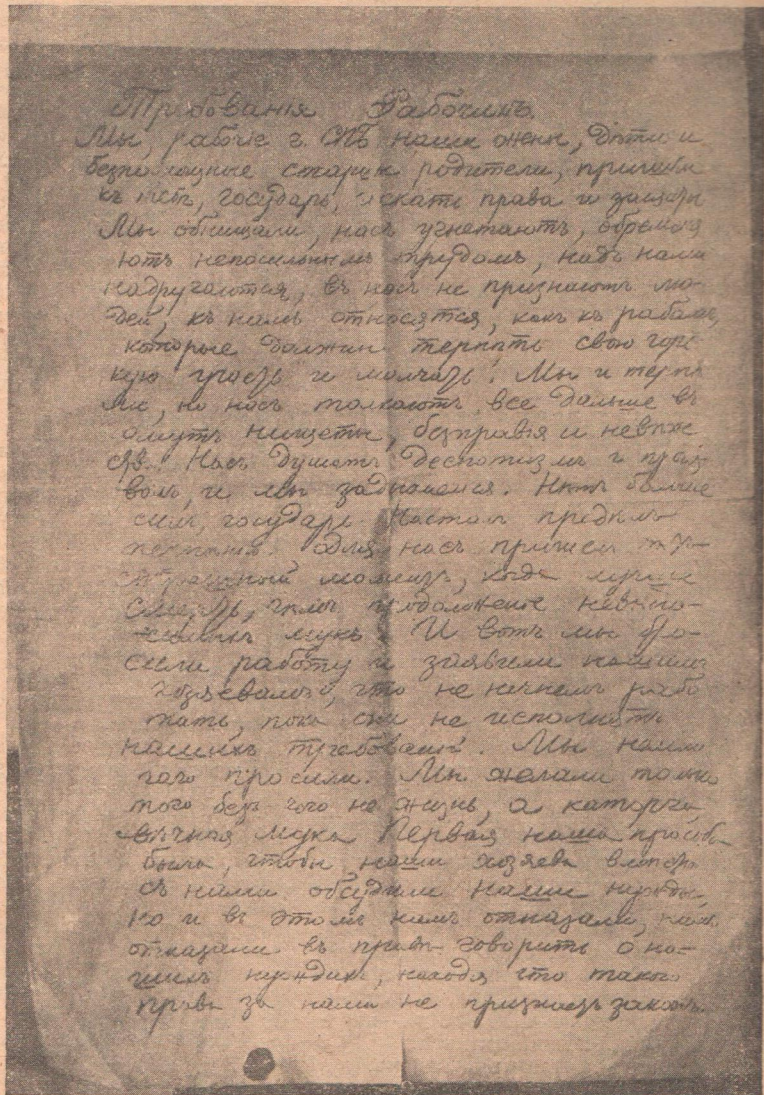 Требованія Рабочихъ
Мы, рабочіе г. СПБ наши жены, дѣти и
безпомощные старцы родители, пришли
къ тебѣ, государь, искать правды и защиты
Мы обнищали, насъ угнетаютъ, обременя
ютъ непосильнымъ трудомъ, надъ нами
надругаются, въ насъ не признаютъ лю-
дей, къ намъ относятся, какъ къ рабамъ,
которые должны терпѣть свою горь
кую участь и молчать. Мы и терпѣ
ли, но насъ толкаютъ все дальше въ
омутъ нищеты, безправья и невѣже
ства. Насъ душатъ деспотизмъ и произ
волъ, и мы задыхаемся. Нѣтъ больше
силъ, государь. Насталъ предѣлъ
терпѣнія. Для насъ пришелъ тотъ
страшный моментъ, когда лучше
смерть, чѣмъ продолженіе невыно-
симыхъ мукъ. И вотъ мы бро-
сили работу и заявили нашимъ
хозяевамъ, что не начнемъ рабо
тать, пока они не исполнятъ
нашихъ требованій. Мы мало
чего просили. Мы желали только
того безъ чего не жизнь, а каторга
вѣчная мука Первая наша просьба
была, чтобы наши хозяева вмѣстѣ
съ нами обсудили наши нужды,
но и въ этомъ намъ отказали, намъ
отказали въ правѣ говорить о на-
шихъ нуждахъ, находя что такого
права за нами не признаетъ законъ